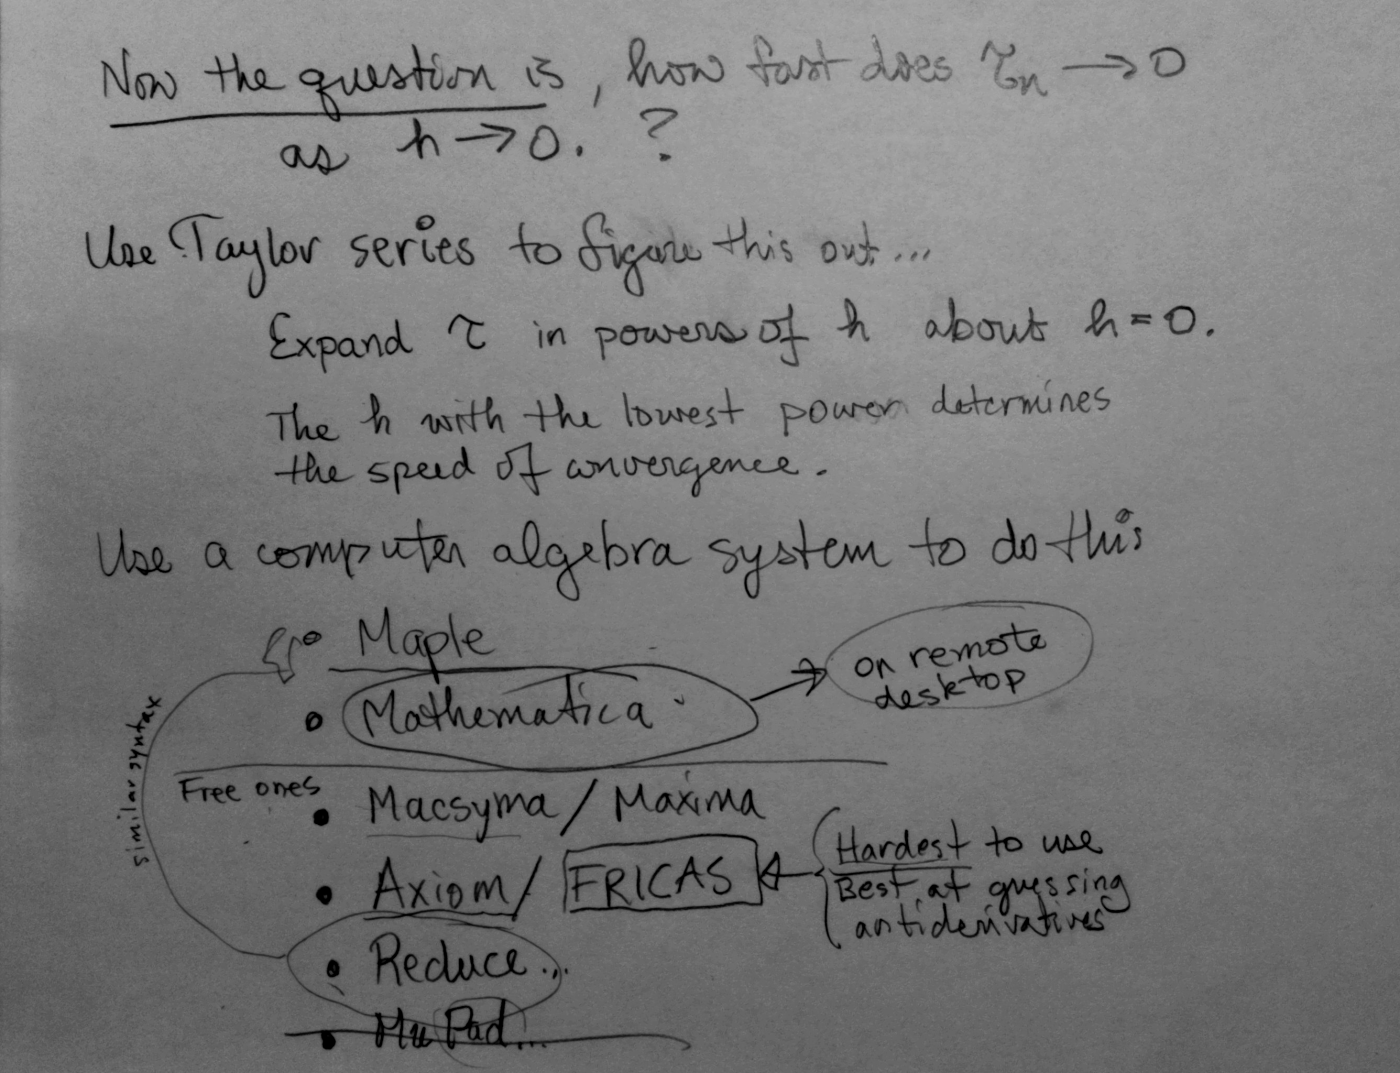 Now the question is, how fast does τₙ → 0
as h → 0. ?
Use Taylor series to figure this out...
Expand τ in powers of h about h = 0.
The h with the lowest power determines
the speed of convergence.
Use a computer algebra system to do this
• Maple
• Mathematica → on remote
desktop
similar syntax
Free ones
• Macsyma / Maxima
• Axiom / FRICAS
Hardest to use
Best at guessing
antiderivatives
• Reduce...
• MuPad...